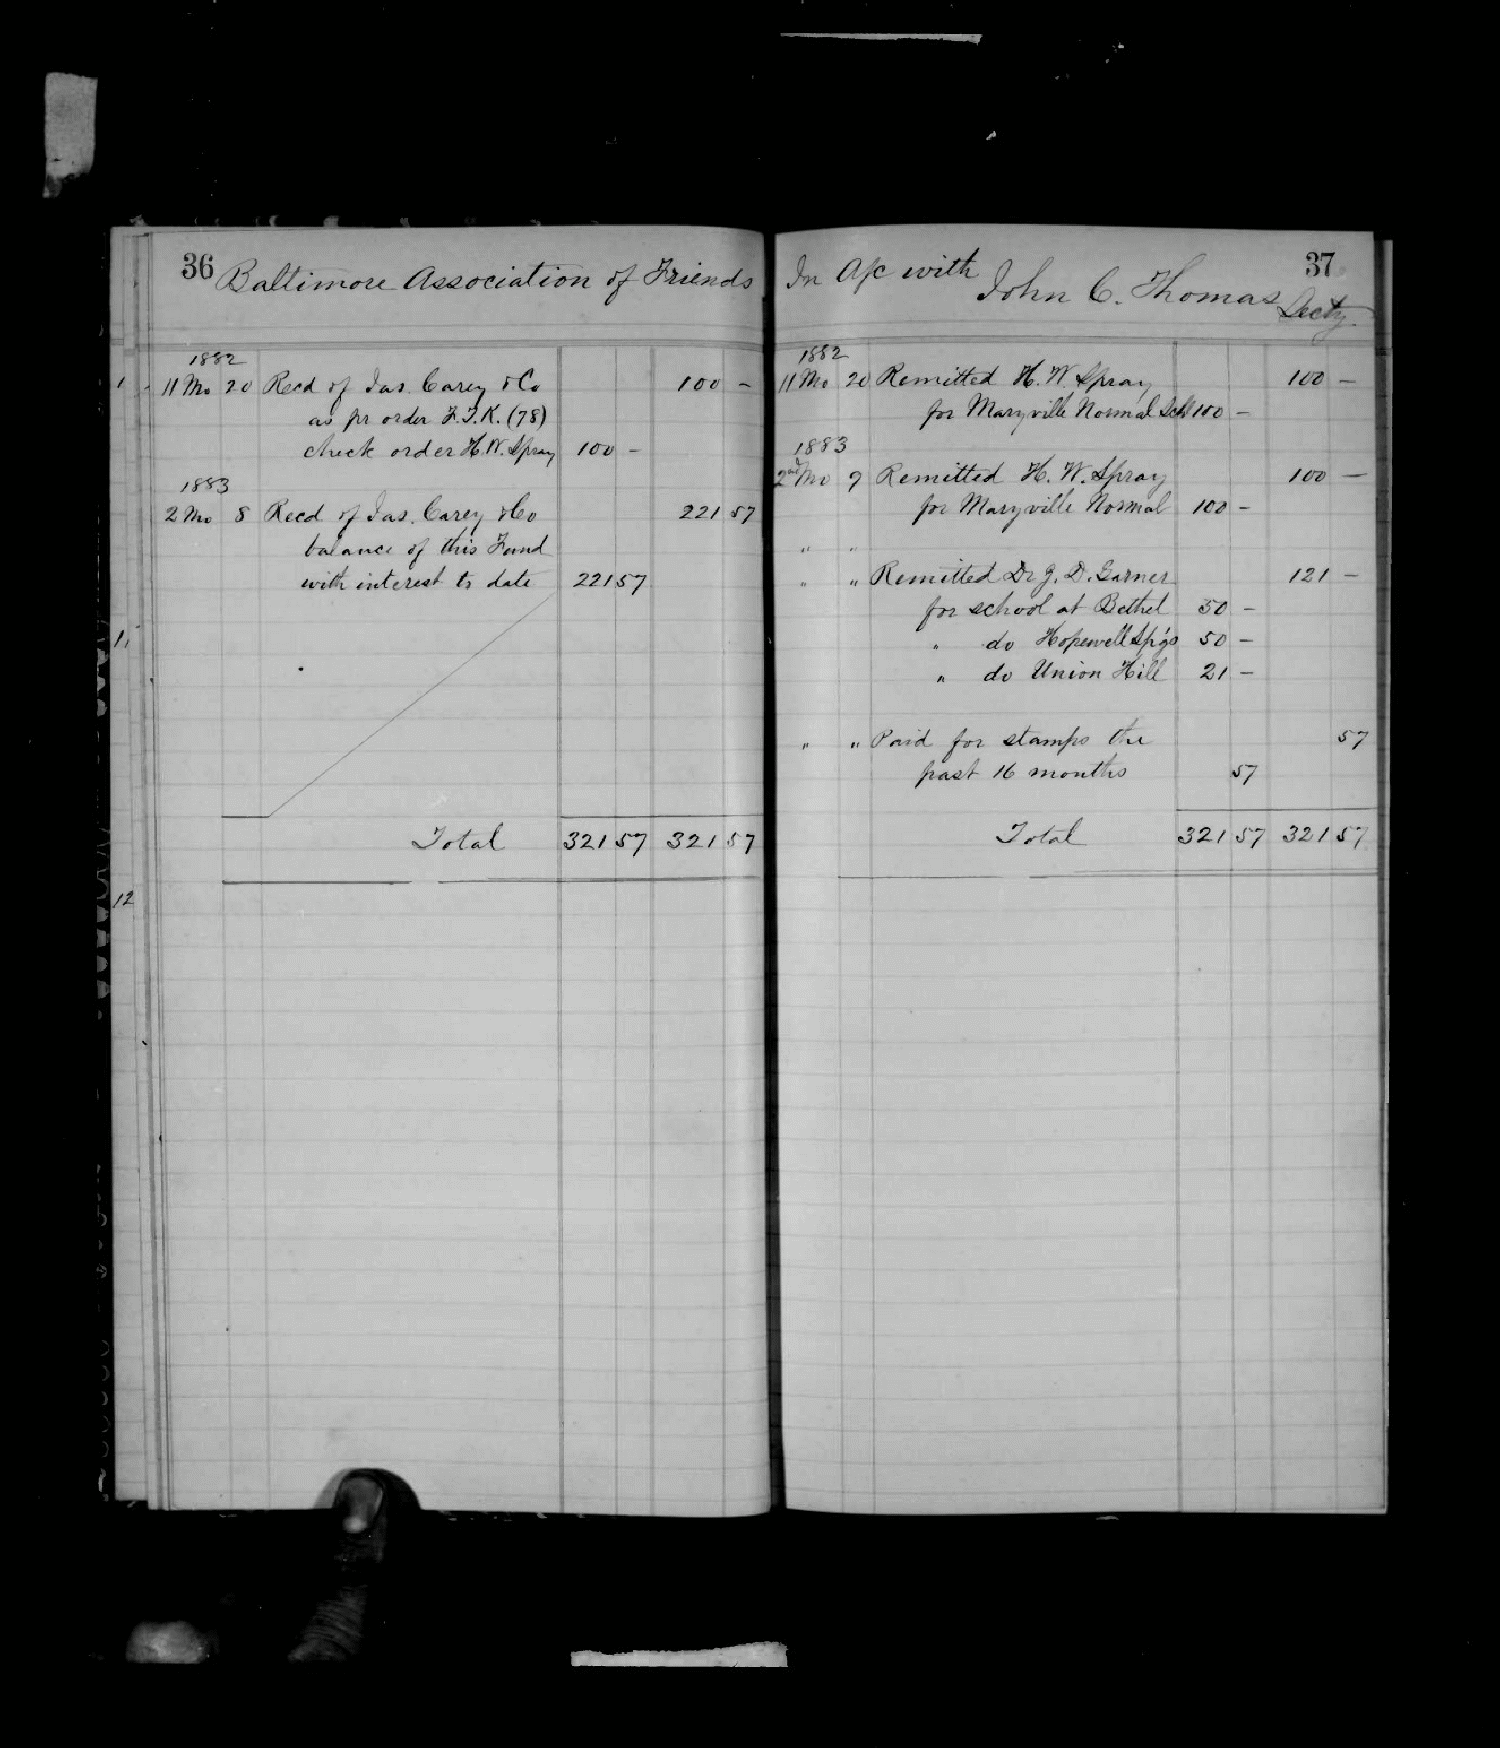 36 Baltimore Association of Friends
1882
11 Mo 20 Recd of Jas. Carey & Co 100 -
as pr order F.T.K. (78)
check order H.W. Spray 100 -
1883
2 Mo 8 Recd of Jas. Carey & Co 221 57
balance of this Fund
with interest to date 221 57
Total 321 57 321 57
1
11
12
In A/c with 37
John C. Thomas Secty
1882
11 Mo 20 Remitted H. W. Spray 100 -
for Maryville Normal Schl 100 -
1883
2nd Mo 9 Remitted H. W. Spray 100 -
for Maryville Normal 100 -
" "
" " Remitted Dr J. D. Garner 121 -
for school at Bethel 50 -
" do Hopewell Sp'gs 50 -
" do Union Hill 21 -
" " Paid for stamps the 57
past 16 months 57
Total 321 57 321 57